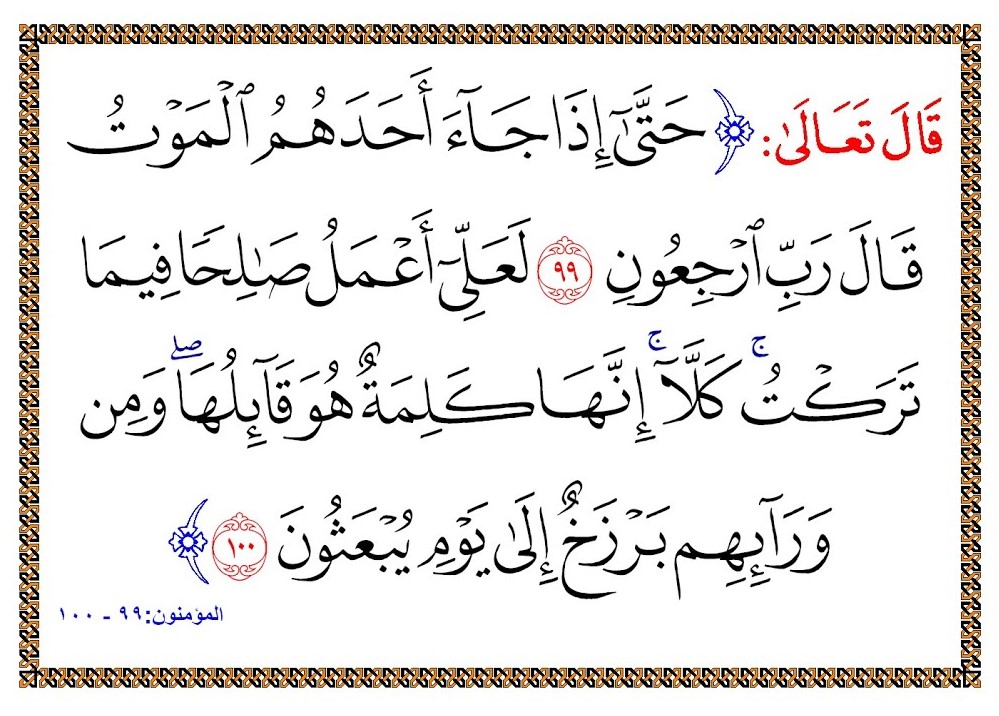 قَالَ تَعَالَىٰ: ﴿حَتَّىٰٓ إِذَا جَآءَ أَحَدَهُمُ ٱلْمَوْتُ
قَالَ رَبِّ ٱرْجِعُونِ ٩٩ لَعَلِّىٓ أَعْمَلُ صَـٰلِحًا فِيمَا
تَرَكْتُ ۚ كَلَّآ ۚ إِنَّهَا كَلِمَةٌ هُوَ قَآئِلُهَا ۖ وَمِن
وَرَآئِهِم بَرْزَخٌ إِلَىٰ يَوْمِ يُبْعَثُونَ ١٠٠﴾
المؤمنون:٩٩ - ١٠٠